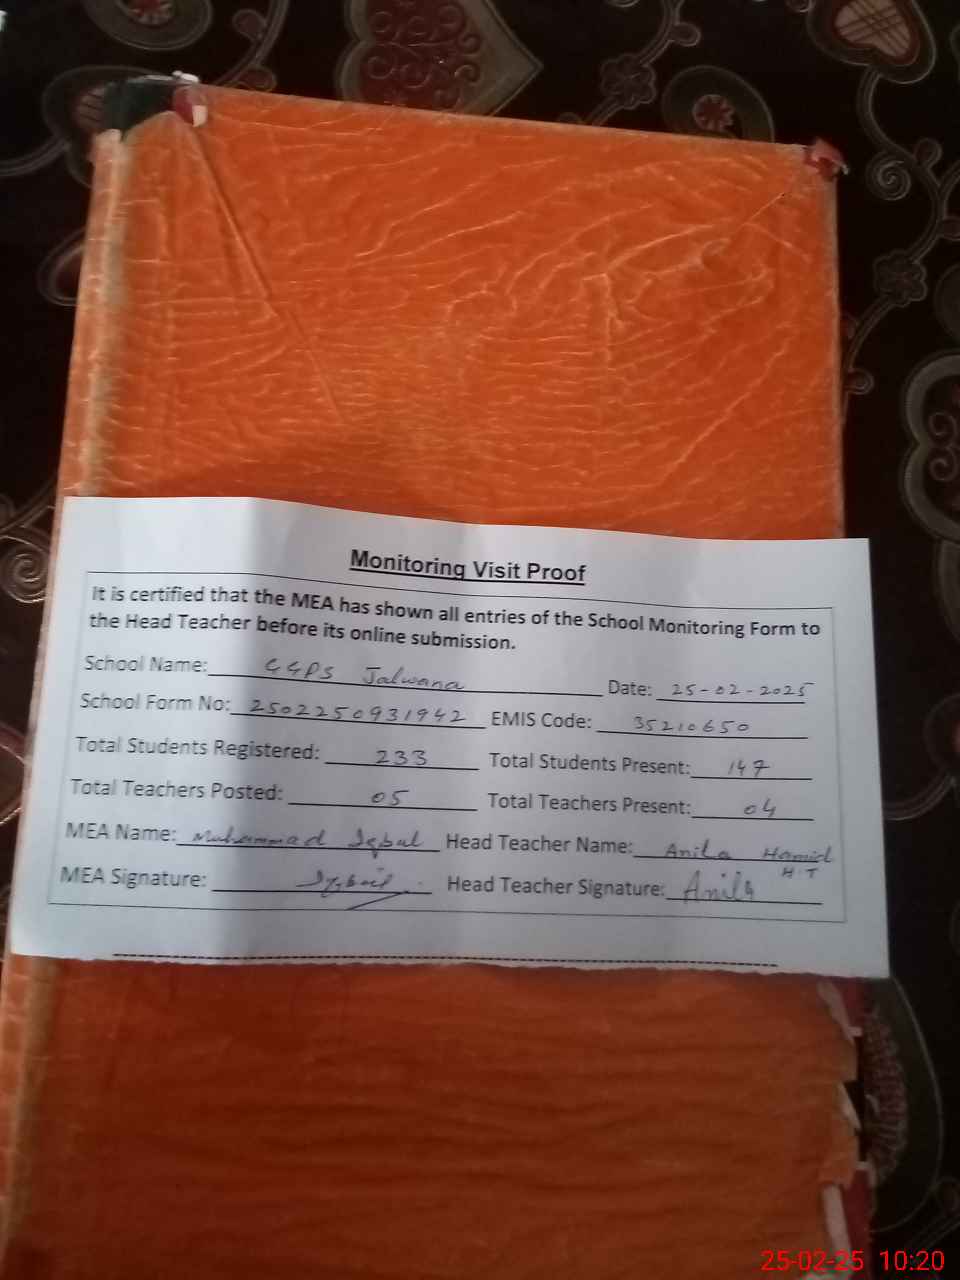 Monitoring Visit Proof
It is certified that the MEA has shown all entries of the School Monitoring Form to
the Head Teacher before its online submission.
School Name: GGPS Jalwana Date: 25-02-2025
School Form No: 2502250931942 EMIS Code: 35210650
Total Students Registered: 233 Total Students Present: 147
Total Teachers Posted: 05 Total Teachers Present: 04
MEA Name: Muhammad Iqbal Head Teacher Name: Anila Hamid
H.T
MEA Signature: Iqbal Head Teacher Signature: Anila
25-02-25 10:20